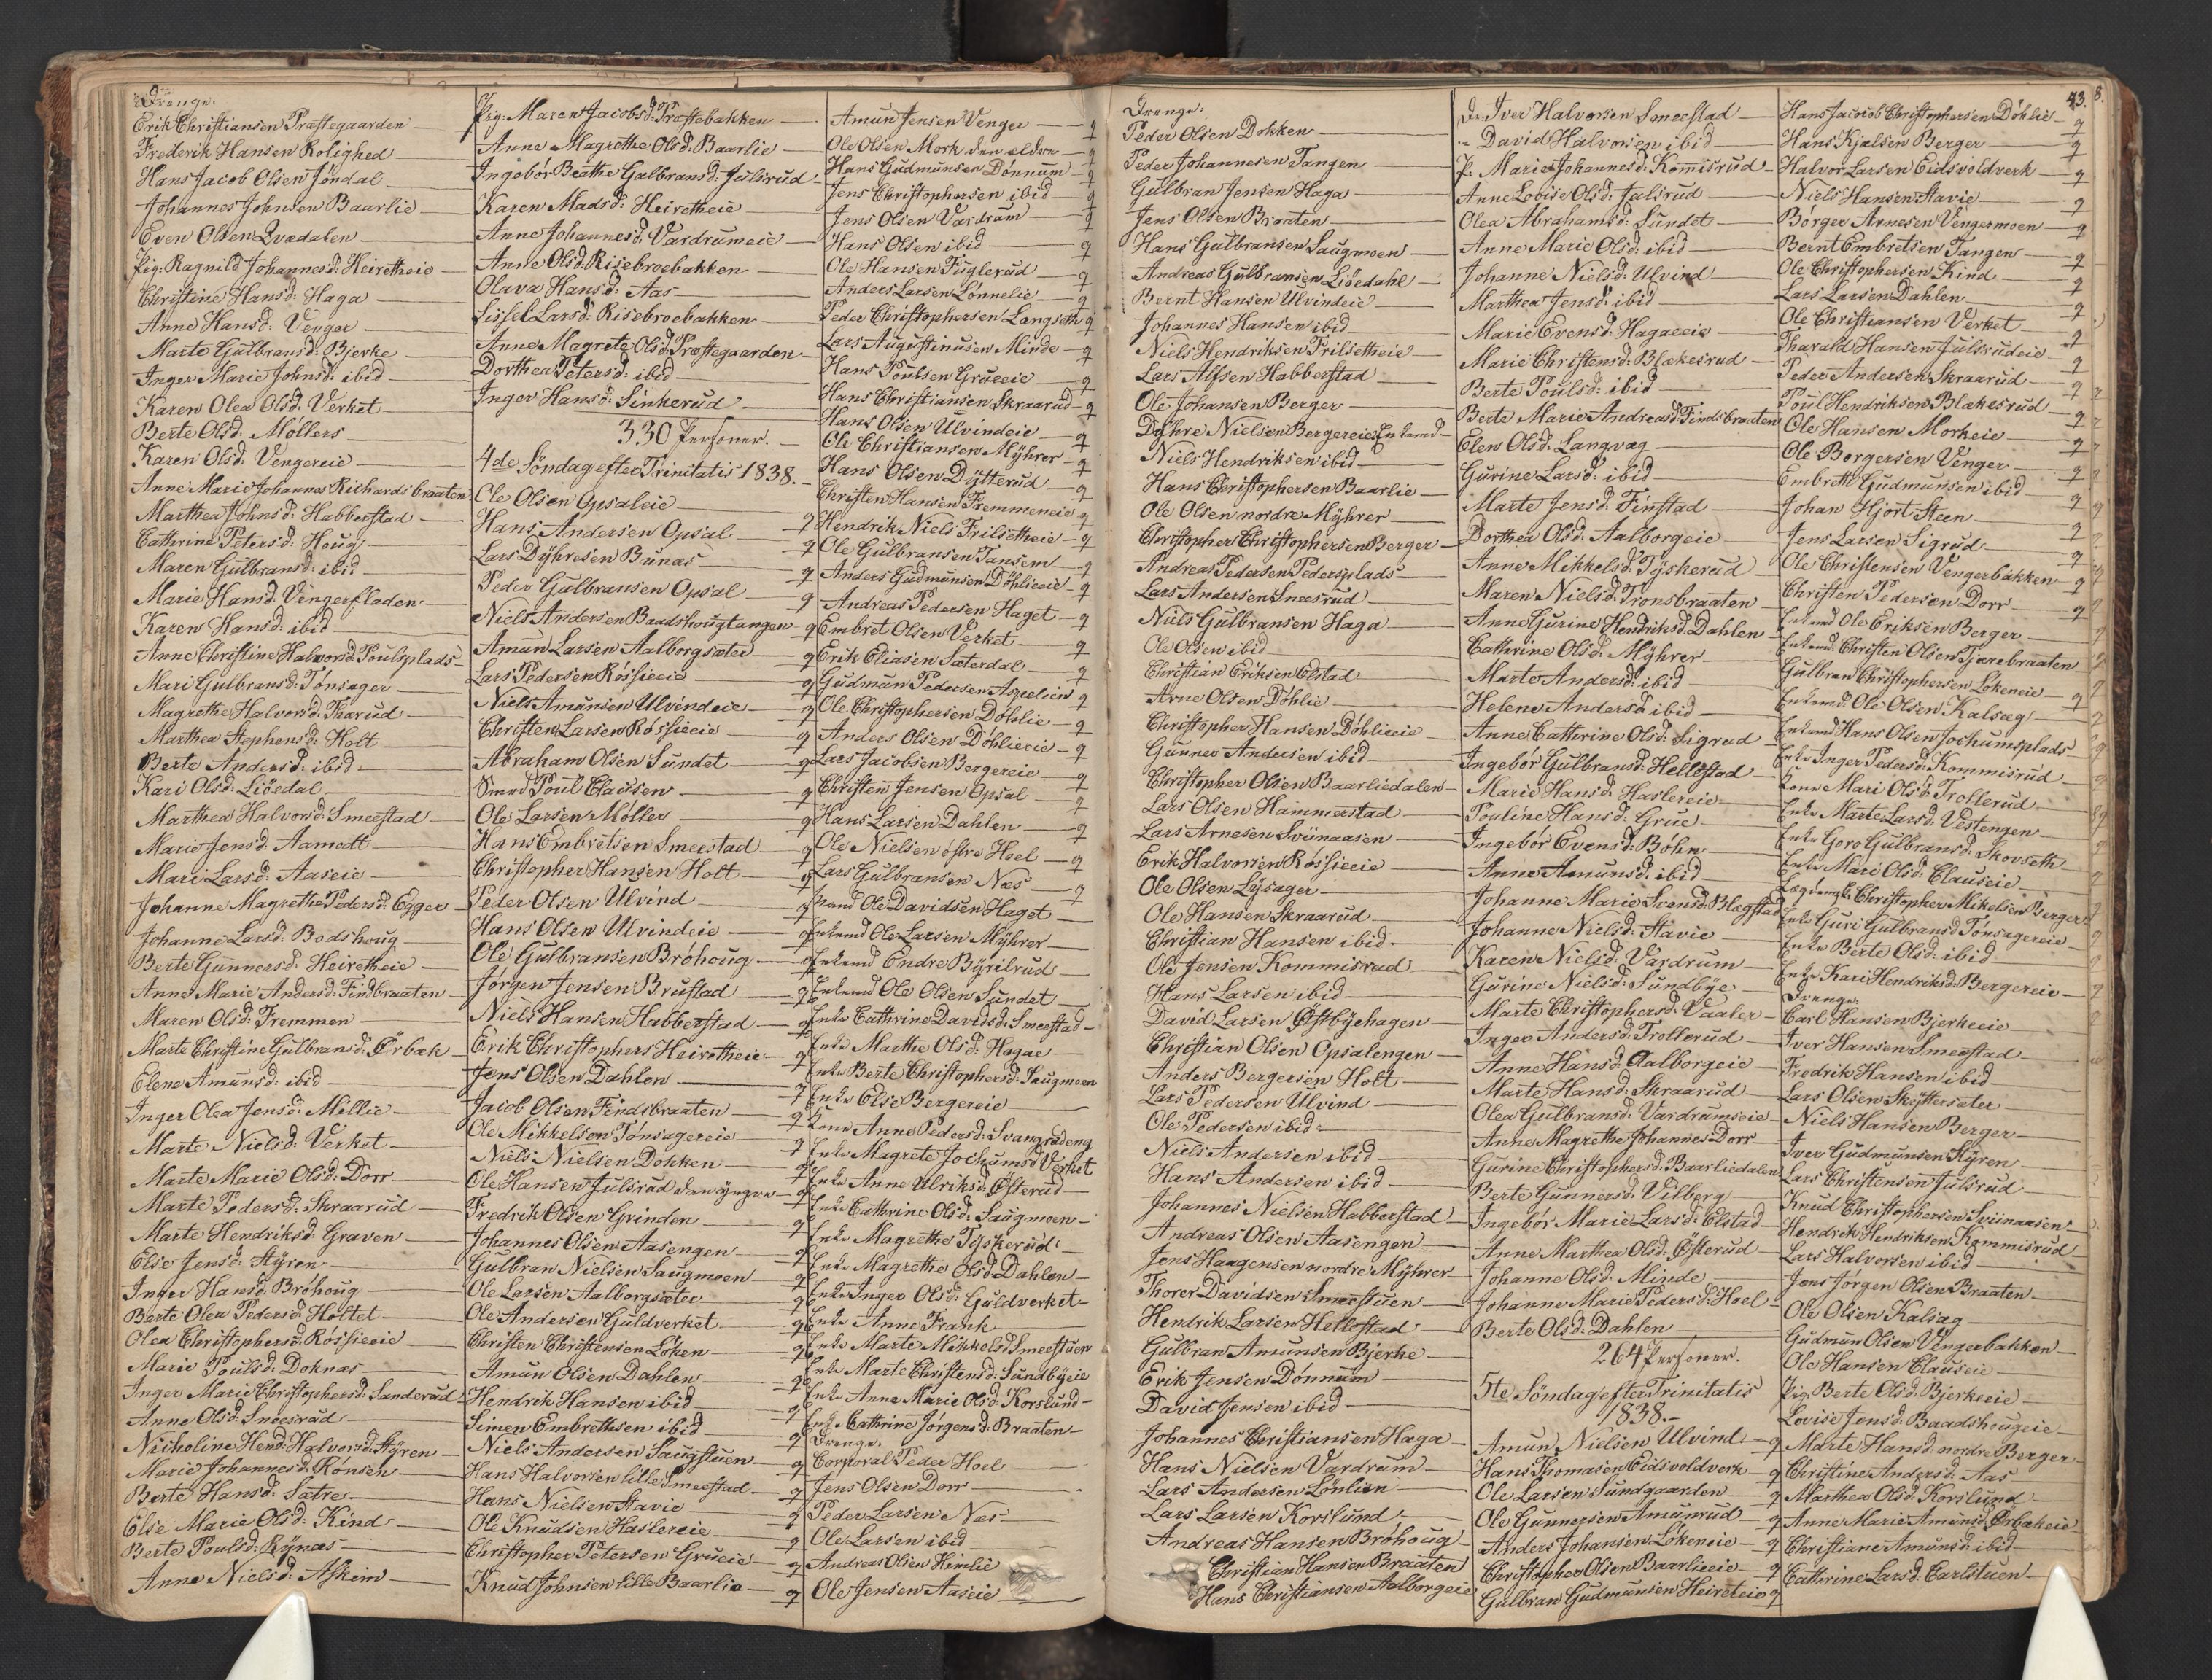 Drenge:
Erik Christiansen Præstegaarden
Frederik Hansen Rolighed
Hans Jacob Olsen Jöndal
Johannes Johnsen Baarlie
Even Olsen Qvædalen
Pig: Ragnild Johannesd: Heiretheie
Christine Hansd: Haga
Anne Hansd: Venger
Marte Gulbransd: Bjerke
Inger Marie Johnsd: ibid
Karen Olea Olsd: Verket
Berte Olsd: Möllers
Karen Olsd: Vengereie
Anne Marie Johannes Richardsbraaten
Marthea Johnsd: Habberstad
Cathrine Petersd: Houg
Maren Gulbransd: ibid
Marie Hansd: Vengerfladen
Karen Hansd: ibid
Anne Christine Halvorsd: Poulsplads
Mari Gulbransd: Tönsager
Magrethe Halvorsd: Tharud
Marthea Stephensd: Holt
Berte Andersd: ibid
Kari Olsd: Liöedal
Marthea Halvorsd: Smeestad
Marie Jensd: Aamodt
Mari Larsd: Aaseie
Johanne Magrethe Pedersd: Egger
Johanne Larsd: Bodshoug
Berte Gunnersd: Heiretheie
Anne Marie Andersd: Findbraaten
Maren Olsd: Fremmen
Marte Christine Gulbransd: Örbæk
Elene Amunsd: ibid
Inger Olea Jensd: Millie
Marte Nielsd: Verket
Marte Marie Olsd: Dorr
Marte Pedersd: Skraarud
Marte Hendriksd: Graven
Else Jensd: Styren
Inger Hansd: Bröhoug
Berte Olea Pedersd: Holtet
Olea Christophersd: Rössieeie
Marie Poulsd: Doknæs
Inger Marie Christophersd: Sanderud
Anne Olsd: Sneesrud
Nicholine Hend: Halvorsd: Styren
Marie Johannesd: Rönsen
Berte Hansd: Sætre
Else Marie Olsd: Kind
Berte Poulsd: Rÿnæs
Anne Nielsd: Askeim
Pig: Maren Jacobsd: Præstebakken
Anne Magrethe Olsd: Baarlie
Ingebör Beathe Gulbransd: Julsrud
Karen Madsd: Heiretheie
Anne Johannesd: Vardrumeie
Anne Olsd: Risebroebakken
Olava Hansd: Aas
Sissel Larsd: Risebroebakken
Anne Magrete Olsd: Præstegaarden
Dorthea Petersd: ibid
Inger Hansd: Sinkerud
330 Personer.
4de Söndag efter Trinitatis 1838.
Ole Olsen Opsaleie
Hans Andersen Opsal
Lars Dÿhresen Bunæs
Peder Gulbransen Opsal
Niels Andersen Baadshougtangen
Amun Larsen Aalborgsæter
Lars Pedersen Rössieeie
Niels Amunsen Ulvindeie
Christen Larsen Rössieeie
Abraham Olsen Sundet
Smed Poul Clausen
Ole Larsen Möller
Hans Embretsen Smeestad
Christopher Hansen Holt
Peder Olsen Ulvind
Hans Olsen Ulvindeie
Ole Gulbransen Bröhoug
Jörgen Jensen Brustad
Niels Hansen Habberstad
Erik Christophers Heiretheie
Jens Olsen Dahlen
Jacob Olsen Findsbraaten
Ole Mikkelsen Tönsagereie
Niels Nielsen Dokken
Ole Hansen Julsrud den yngre
Fredrik Olsen Grinden
Johannes Olsen Aasengen
Gulbran Nielsen Saugmoen
Ole Larsen Aalborgsæter
Ole Andersen Guldverket
Christen Christensen Löken
Amun Olsen Dahlen
Hendrik Hansen ibid
Simen Embrethsen ibid
Niels Andersen Saugstuen
Hans Halvorsen lille Smeestad
Hans Nielsen Stavie
Ole Knudsen Haslereie
Christopher Petersen Grueeie
Knud Johnsen lille Baarlie
Amun Jensen Venger
Ole Olsen Mork den ældre
Hans Gudmunsen Dönnum
Jens Christophersen ibid
Jens Olsen Vardrum
Hans Olsen ibid
Ole Hansen Fuglerud
Anders Larsen Lönnelie
Peder Christophersen Langseth
Lars Augustinusen Minde
Hans Poulsen Grueeie
Hans Christiansen Skraarud
Hans Olsen Ulvindeie
Ole Christiansen Mÿhrer
Hans Olsen Dÿtterud
Christen Hansen Fremmeneie
Hendrik Niels Frilsetheie
Ole Gulbransen Tansem
Anders Gudmunsen Döhlieeie
Andreas Pedersen Haget
Embret Olsen Verket
Erik Eliasen Sæterdal
Gudmun Pedersen Aspelien
Ole Christophersen Döhlie
Anders Olsen Döhlieeie
Lars Jacobsen Bergereie
Christen Jensen Opsal
Hans Larsen Dahlen
Ole Nielsen östre Hoel
Lars Gulbransen Næs
Mand Ole Davidsen Haget
Enkemd Ole Larsen Mÿhrer
Enkemd Endre Bÿrilrud
Enkemd Ole Olsen Sundet
Enke Cathrine Davidsd: Smeestad
Enke Marthe Olsd: Hagae
Enke Berte Christophersd: Saugmoen
Enke Else Bergereie
Kone Anne Pedersd: Svangrudeng
Enke Magrete Jochumsd Verket
Enke Anne Ulriksd: Österud
Enke Cathrine Olsd: Saugmoen
Enke Magrethe Tÿskerud
Enke Magrethe Olsd: Dahlen
Enke Inger Olsd: Guldverket
Enke Anne Frank
Enke Marte Mikkelsd Smeestuen
Enke Marte Christensd: Sundbÿeie
Enke Anne Marie Olsd: Korslund
Enke Cathrine Jörgensd: Braaten
Drenge.
Corporal Peder Hoel
Jens Olsen Dorr
Peder Larsen Næs
Ole Larsen ibid
Andreas Olsen Himlie
Ole Jensen Aaseie
43.
8.
Drenge:
Peder Olsen Dokken
Peder Johannesen Tangen
Gulbran Jensen Haga
Jens Olsen Braaten
Hans Gulbransen Saugmoen
Andreas Gulbransen Liöedahl
Bernt Hansen Ulvindeie
Johannes Hansen ibid
Niels Hendriksen Frilsetheie
Lars Alfsen Habberstad
Ole Johansen Berger
Dÿhre Nielsen Bergereie
Niels Hendriksen ibid
Hans Christophersen Baarlie
Ole Olsen nordre Mÿhrer
Christopher Christophersen Berger
Andreas Pedersen Pedersplads
Lars Andersen Sneesrud
Niels Gulbransen Haga
Ole Olsen ibid
Christian Eriksen Elstad
Arne Olsen Döhlie
Christopher Hansen Döhlieeie
Gunner Andersen ibid
Christopher Olsen Baarliedalen
Lars Olsen Hammerstad
Lars Arnesen Sviinaasen
Erik Halvorsen Rössieeie
Ole Olsen Lÿsager
Ole Hansen Skraarud
Christian Hansen ibid
Ole Jensen Kommisrud
Hans Larsen ibid
David Larsen Östbÿehagen
Christian Olsen Opsalengen
Anders Bergersen Holt
Lars Pedersen Ulvind
Ole Pedersen ibid
Niels Andersen ibid
Hans Andersen ibid
Johannes Nielsen Habberstad
Andreas Olsen Aasengen
Jens Haagensen nordre Mÿhrer
Thorer Davidsen Smeestuen
Hendrik Larsen Hellöstad
Gulbran Amunsen Bjerke
Erik Jensen Dönnum
David Jensen ibid
Johannes Christiansen Haga
Hans Nielsen Vardrum
Lars Andersen Lönlien
Lars Larsen Korslund
Andreas Hansen Bröhoug
Christian Hansen Braaten
Hans Christiansen Aalborgeie
Dr: Iver Halvorsen Smeestad
David Halvorsen ibid
P: Marie Johannesd: Kommisrud
Anne Lovise Olsd: Julsrud
Olea Abrahamsd: Sundet
Anne Marie Olsd: ibid
Johanne Nielsd: Ulvind
Marthea Jensd: ibid
Marie Evensd: Hagaeeie
Marie Christensd: Blækesrud
Berte Poulsd: ibid
Berte Marie Andreasd: Findsbraaten
Elen Olsd: Langvag
Gurine Larsd: ibid
Marte Jensd: Finstad
Dorthea Olsd: Aalborgeie
Anne Mikkelsd: Tÿskerud
Maren Nielsd: Tronsbraaten
Anne Gurine Hendriksd: Dahlen
Cathrine Olsd: Mÿhrer
Marte Andersd: ibid
Helene Andersd: ibid
Anne Cathrine Olsd: Sigrud
Ingebör Gulbransd: Hellöstad
Marie Hansd: Haslereie
Pouline Hansd: Grue
Ingebör Evensd: Böhn
Anne Amunsd: ibid
Johanne Marie Svensd: Blegstad
Johanne Nielsd: Stavie
Karen Nielsd: Vardrum
Gurine Nielsd: Sundbÿe
Marte Christophersd: Vaaler
Inger Andersd: Trollerud
Anne Hansd: Aalborgeie
Marte Hansd: Skraarud
Olea Gulbransd: Vardrumseie
Anne Magrethe Johannes Dorr
Gurine Christophersd: Baarliedalen
Berte Gunnersd: Vilberg
Ingebör Marie Larsd: Elstad
Anne Marthea Olsd: Österud
Johanne Olsd: Minde
Johanne Marie Pedersd: Hoel
Berte Olsd: Dahlen
264 Personer.
5te Söndag efter Trinitatis
1838.
Amun Nielsen Ulvind
Hans Thomasen Eidsvoldverk
Ole Larsen Sundgaarden
Ole Gunnersen Amunrud
Anders Johansen Lökeneie
Christopher Olsen Baarlieeie
Gulbran Gudmunsen Heireteie
Hans Jacob Christophersen Döhlie
Hans Kjælsen Berger
Halvor Larsen Eidsvoldverk
Niels Hansen Stavie
Börger Arnesen Vengermoen
Bernt Embretsen Tangen
Ole Christophersen Kind
Lars Larsen Dahlen
Ole Christiansen Verket
Tharald Hansen Julsrudeie
Peder Andersen Skraarud
Poul Hendriksen Blækesrud
Ole Hansen Morkeie
Ole Borgersen Venger
Embrett Gudmunsen ibid
Johan Hjort Steen
Jens Larsen Sigrud
Ole Christensen Vengerbakken
Christen Pedersen Dorr
Enkemd Ole Eriksen Berger
Enkemd: Christen Olsen Tjærebraaten
Gulbran Christophersen Lökeneie
Enkemd Ole Olsen Kalsæg
Enkemd Hans Olsen Jochumsplads
Enke Inger Pedersd: Kommisrud
Kone Mari Olsd: Trollerud
Enke Marte Larsd: Vestengen
Enke Goro Gulbransd: Skovseth
Enke Mari Olsd: Clauseie
Christopher Mikelsen Berger
Enke Guri Gulbransd Tönsagereie
Enke Berte Olsd: ibid
Enke Kari Hendriksd: Bergereie
Drenge.
Carl Hansen Bjerkeeie
Iver Hansen Smeestad
Fredrik Hansen ibid
Lars Olsen Skÿttersæter
Niels Hansen Berger
Iver Gudmunsen Styren
Lars Christensen Julsrud
Knud Christophersen Sviinaasen
Hendrik Hendriksen Kommisrud
Lars Halvorsen ibid
Jens Jörgen Olsen Braaten
Ole Olsen Kalsæg
Gudmun Olsen Vengerbakken
Ole Hansen Clauseie
Pig: Berte Olsd: Bjerkeeie
Lovise Jensd: Baadshougeie
Marte Hansd: nordre Berger
Christine Andersd: Aas
Marthea Olsd: Korslund
Anne Marie Amunsd: Örbækeie
Christiane Amunsd: ibid
Cathrine Larsd: Carlstuen